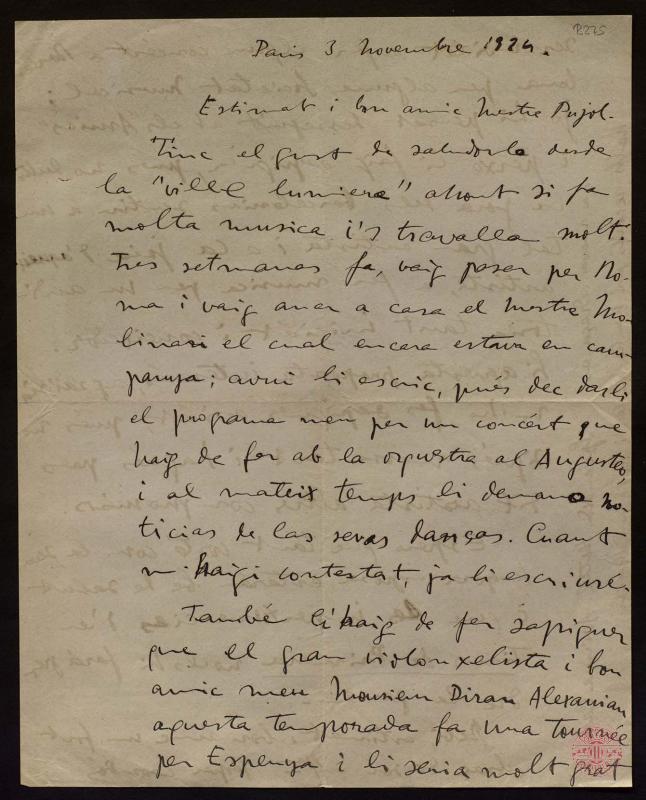 R275
Paris 3 Novembre 1924.
Estimat i bon amic Mestre Pujol.
Tinc el gust de saludarlo desde
la "ville lumiere" ahont si fa
molta musica i's travalla molt.
Tres setmanas fa, vaig pasar per Ro-
ma i vaig anar a casa el Mestre Mo-
linari el cual encara estava en cam-
panya; avui li escric, pués dec darli
el programa meu per un concért que
haig de fer ab la orquestra al Augusteo,
i al mateix temps li demano no-
ticias de las sevas dansas. Cuant
m'haigi contestat, ja li escriuré.
També li haig de fer sapiguer
que el gran violonxelista i bon
amic meu Monsieur Diran Alexanian
aquesta temporada fa una tournée
per Espanya i li seria molt grat